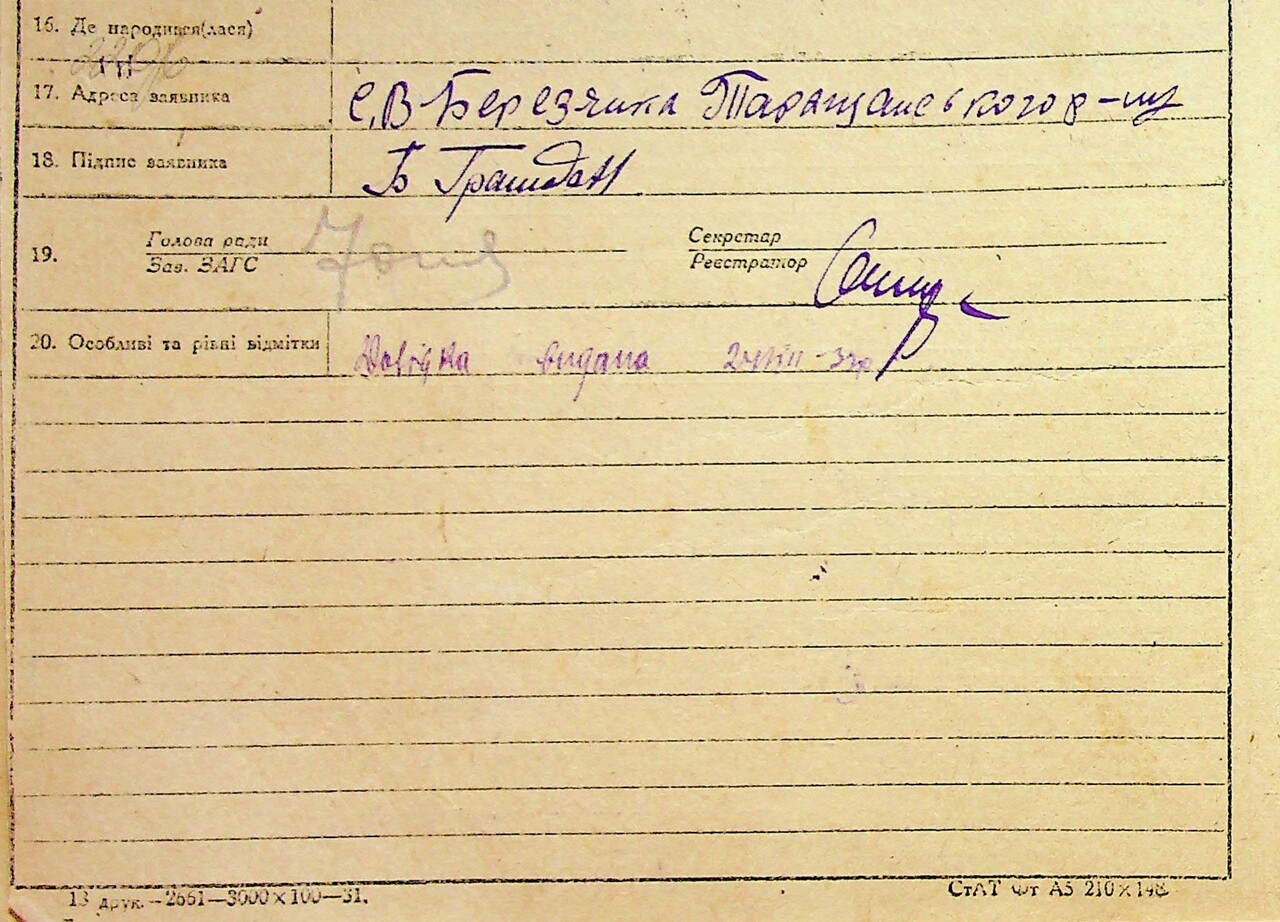 16. Де народився(лася)
17. Адреса заявника С. В-Березянка Таращанського р-ну
18. Підпис заявника Б
19. Голова ради Секретар
Зав. ЗАГС Реєстратор
20. Особливі та різні відмітки Довідка видана
13 друк.-2661—3000×100—31.
СтАТ Фт А5 210×148